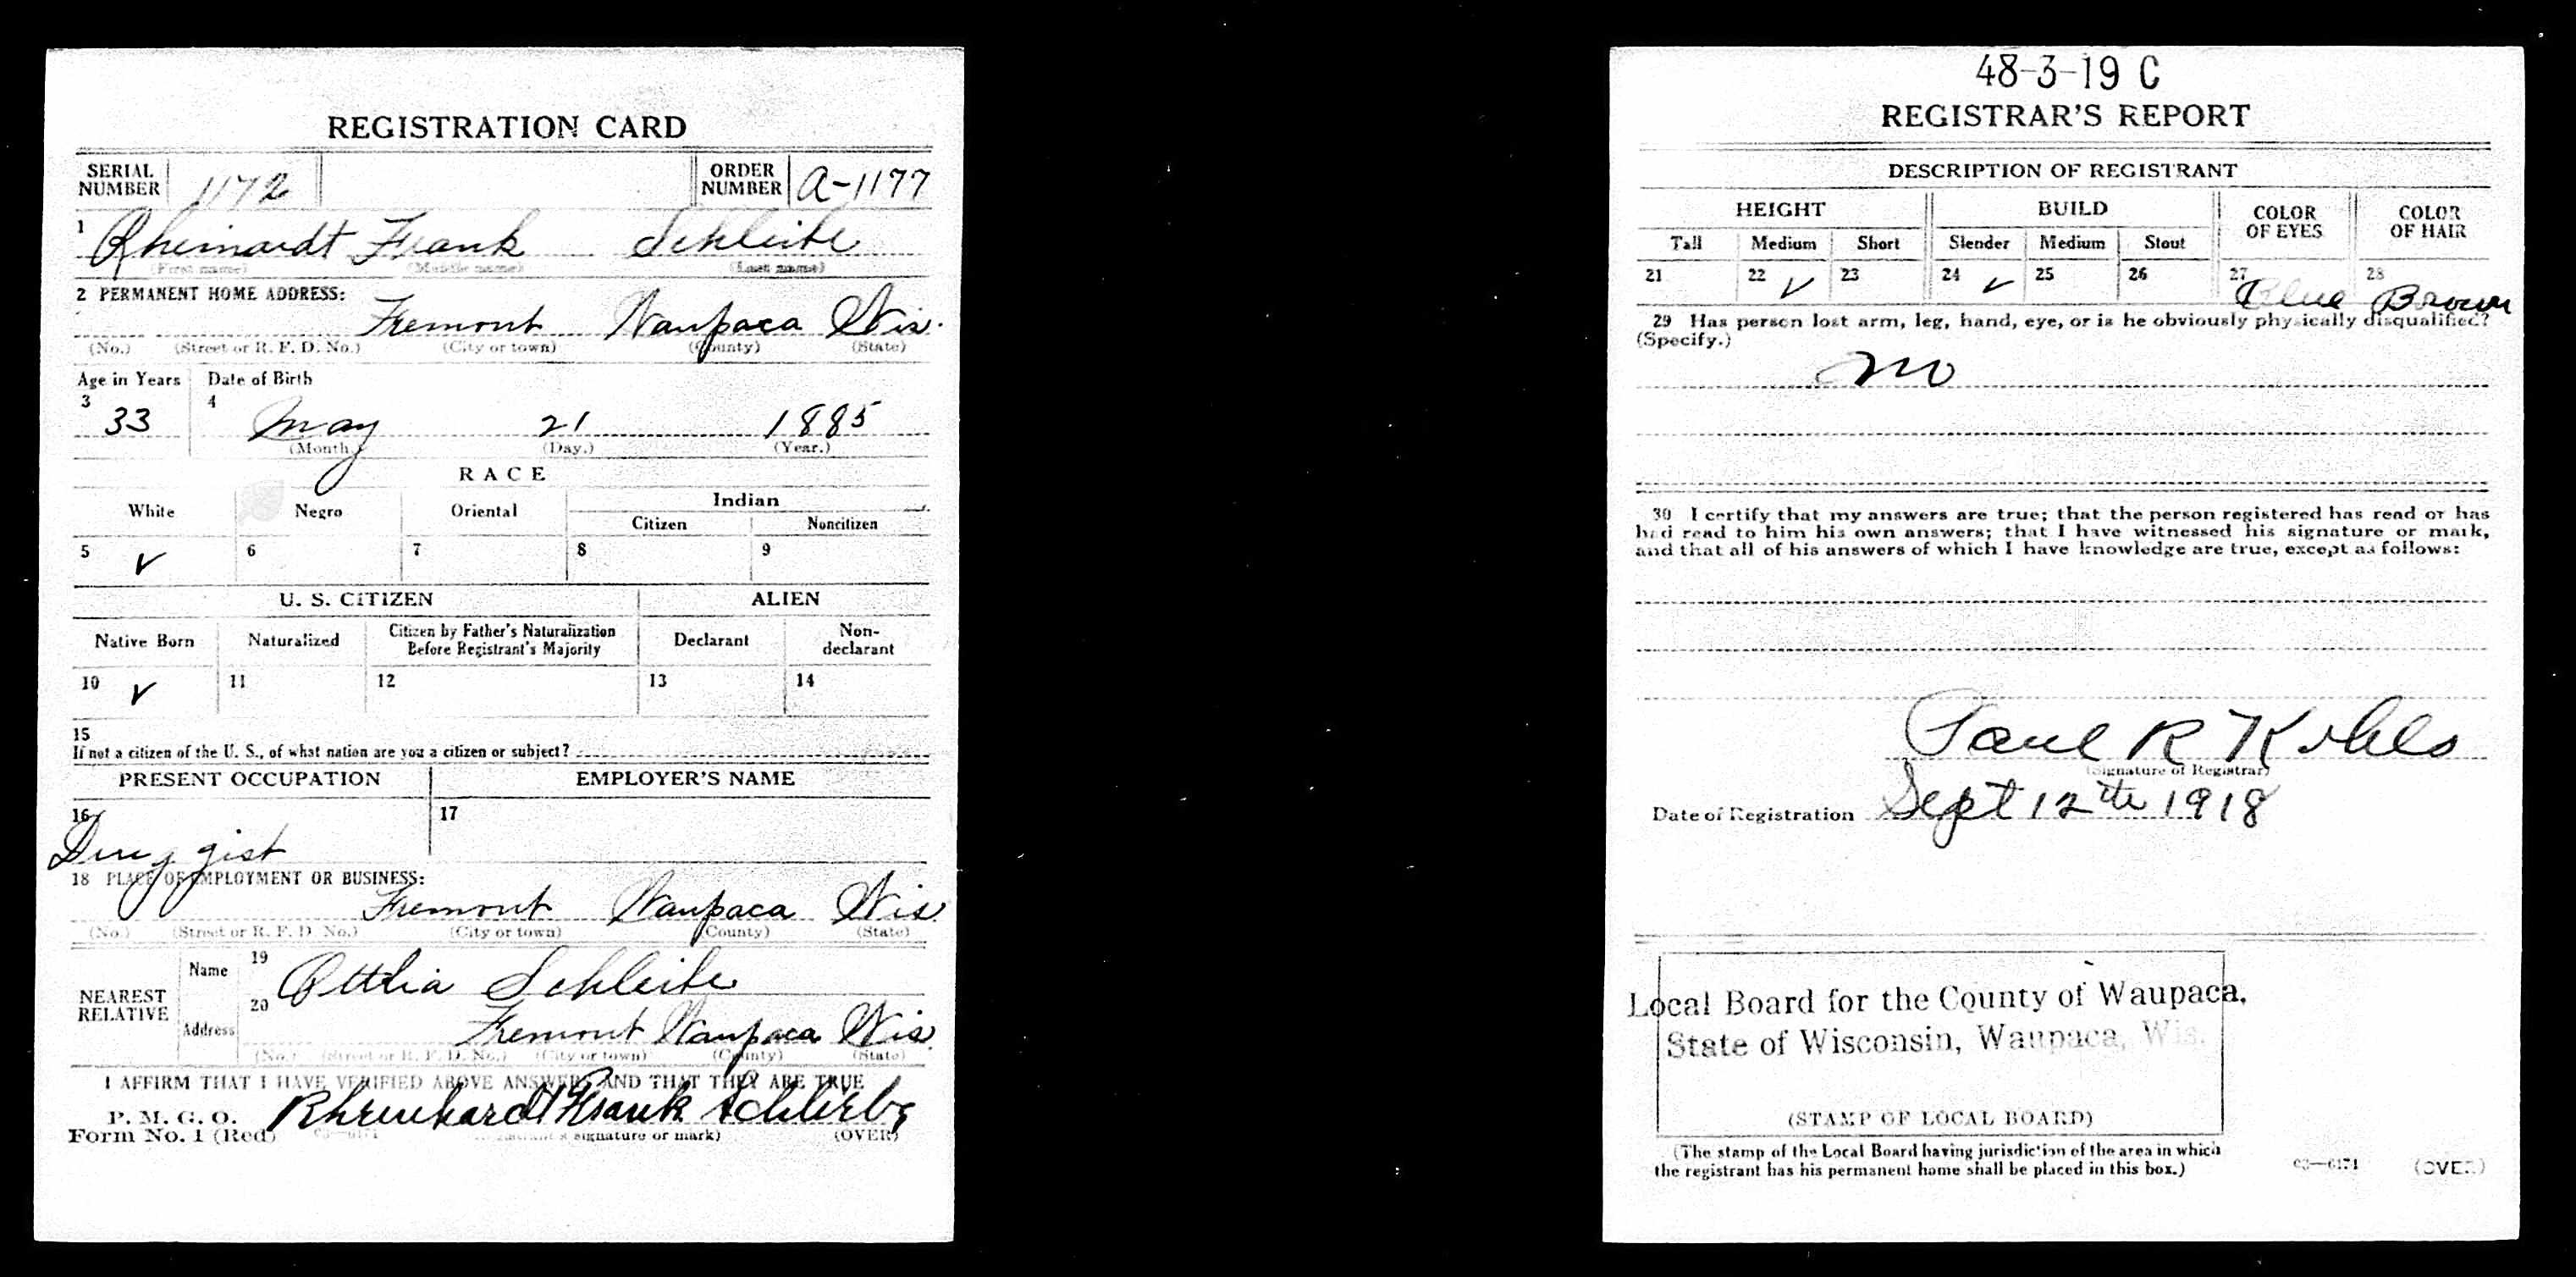 REGISTRATION CARD
SERIAL NUMBER 1172 ORDER NUMBER A-1177
1 Rheinardt Frank Schleibe
(First name) (Middle name) (Last name)
2 PERMANENT HOME ADDRESS:
Fremont Waupaca Wis.
(No.) (Street or R. F. D. No.) (City or town) (County) (State)
Age in Years Date of Birth
3 33 4 May 21 1885
(Month.) (Day.) (Year.)
RACE
White Negro Oriental Indian
Citizen Noncitizen
5 ✓ 6 7 8 9
U. S. CITIZEN ALIEN
Native Born Naturalized Citizen by Father's Naturalization Before Registrant's Majority Declarant Non-declarant
10 ✓ 11 12 13 14
15
If not a citizen of the U. S., of what nation are you a citizen or subject?
PRESENT OCCUPATION EMPLOYER'S NAME
16 Druggist 17
18 PLACE OF EMPLOYMENT OR BUSINESS:
Fremont Waupaca Wis.
(No.) (Street or R. F. D. No.) (City or town) (County) (State)
NEAREST RELATIVE Name 19 Ottlia Schleibe
Address 20 Fremont Waupaca Wis.
(No.) (Street or R. F. D. No.) (City or town) (County) (State)
I AFFIRM THAT I HAVE VERIFIED ABOVE ANSWERS AND THAT THEY ARE TRUE
P. M. G. O.
Form No. 1 (Red) 03-6171 Frank (Registrant's signature or mark) (OVER)
48-3-19 C
REGISTRAR'S REPORT
DESCRIPTION OF REGISTRANT
HEIGHT BUILD COLOR OF EYES COLOR OF HAIR
Tall Medium Short Slender Medium Stout
21 22 ✓ 23 24 ✓ 25 26 27 Blue 28 Brown
29 Has person lost arm, leg, hand, eye, or is he obviously physically disqualified?
(Specify.)
No
30 I certify that my answers are true; that the person registered has read or has
had read to him his own answers; that I have witnessed his signature or mark,
and that all of his answers of which I have knowledge are true, except as follows:
Paul R Kohls
(Signature of Registrar)
Date of Registration Sept 12th 1918
Local Board for the County of Waupaca,
State of Wisconsin, Waupaca, Wis.
(STAMP OF LOCAL BOARD)
(The stamp of the Local Board having jurisdiction of the area in which
the registrant has his permanent home shall be placed in this box.)
03-6171 (OVER)